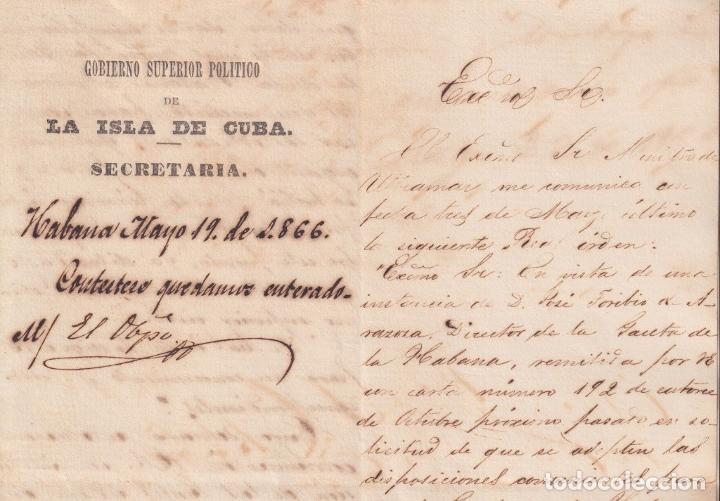 GOBIERNO SUPERIOR POLITICO
DE
LA ISLA DE CUBA.
SECRETARIA.
Habana Mayo 19. de 1.866.
Contestese quedamos enterado-
M/ El Obpo
Excmo Sr.
El Excmo Sr Ministro de
Ultramar me comunica con
fecha tres de Marzo último
la siguiente Real órden:
"Excmo Sr: En vista de una
instancia de D. José Toribio de A-
razoza, Director de la Gaceta de
la Habana, remitida por VE
en carta número 192 de catorce
de Octubre próximo pasado en so-
licitud de que se adopten las
disposiciones
todocoleccion.net